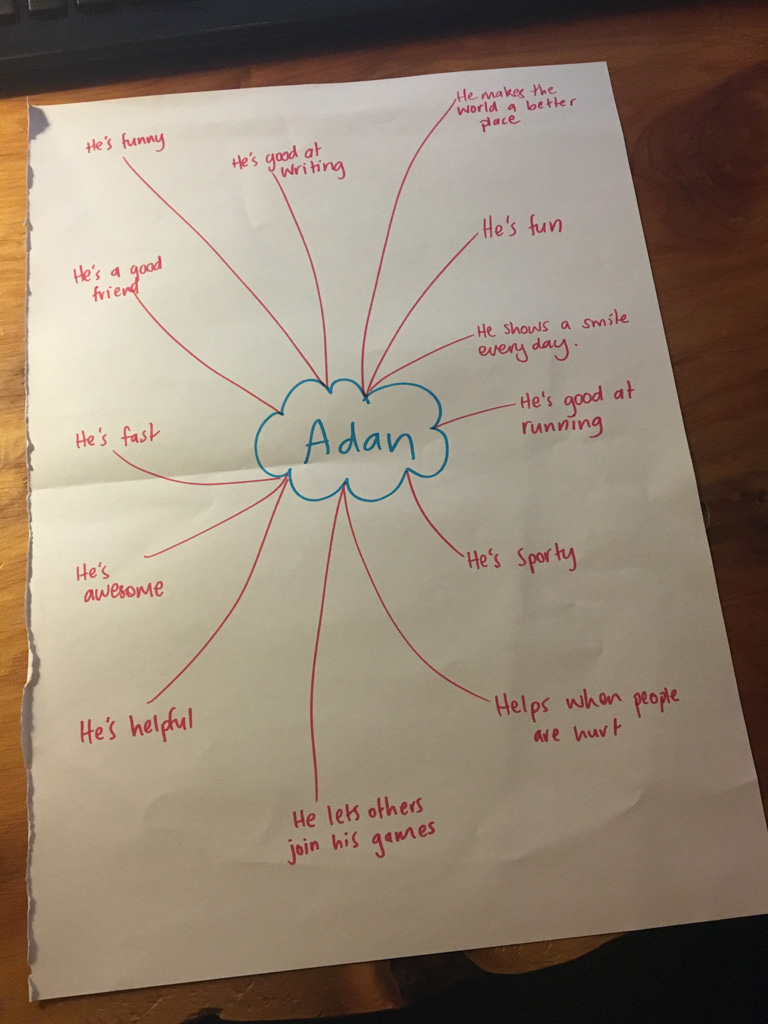 He's funny
He's good at
writing
He makes the
world a better
place
He's fun
He's a good
friend
He shows a smile
every day.
He's good at
running
Adan
He's fast
He's sporty
He's
awesome
He's helpful
Helps when people
are hurt
He lets others
join his games